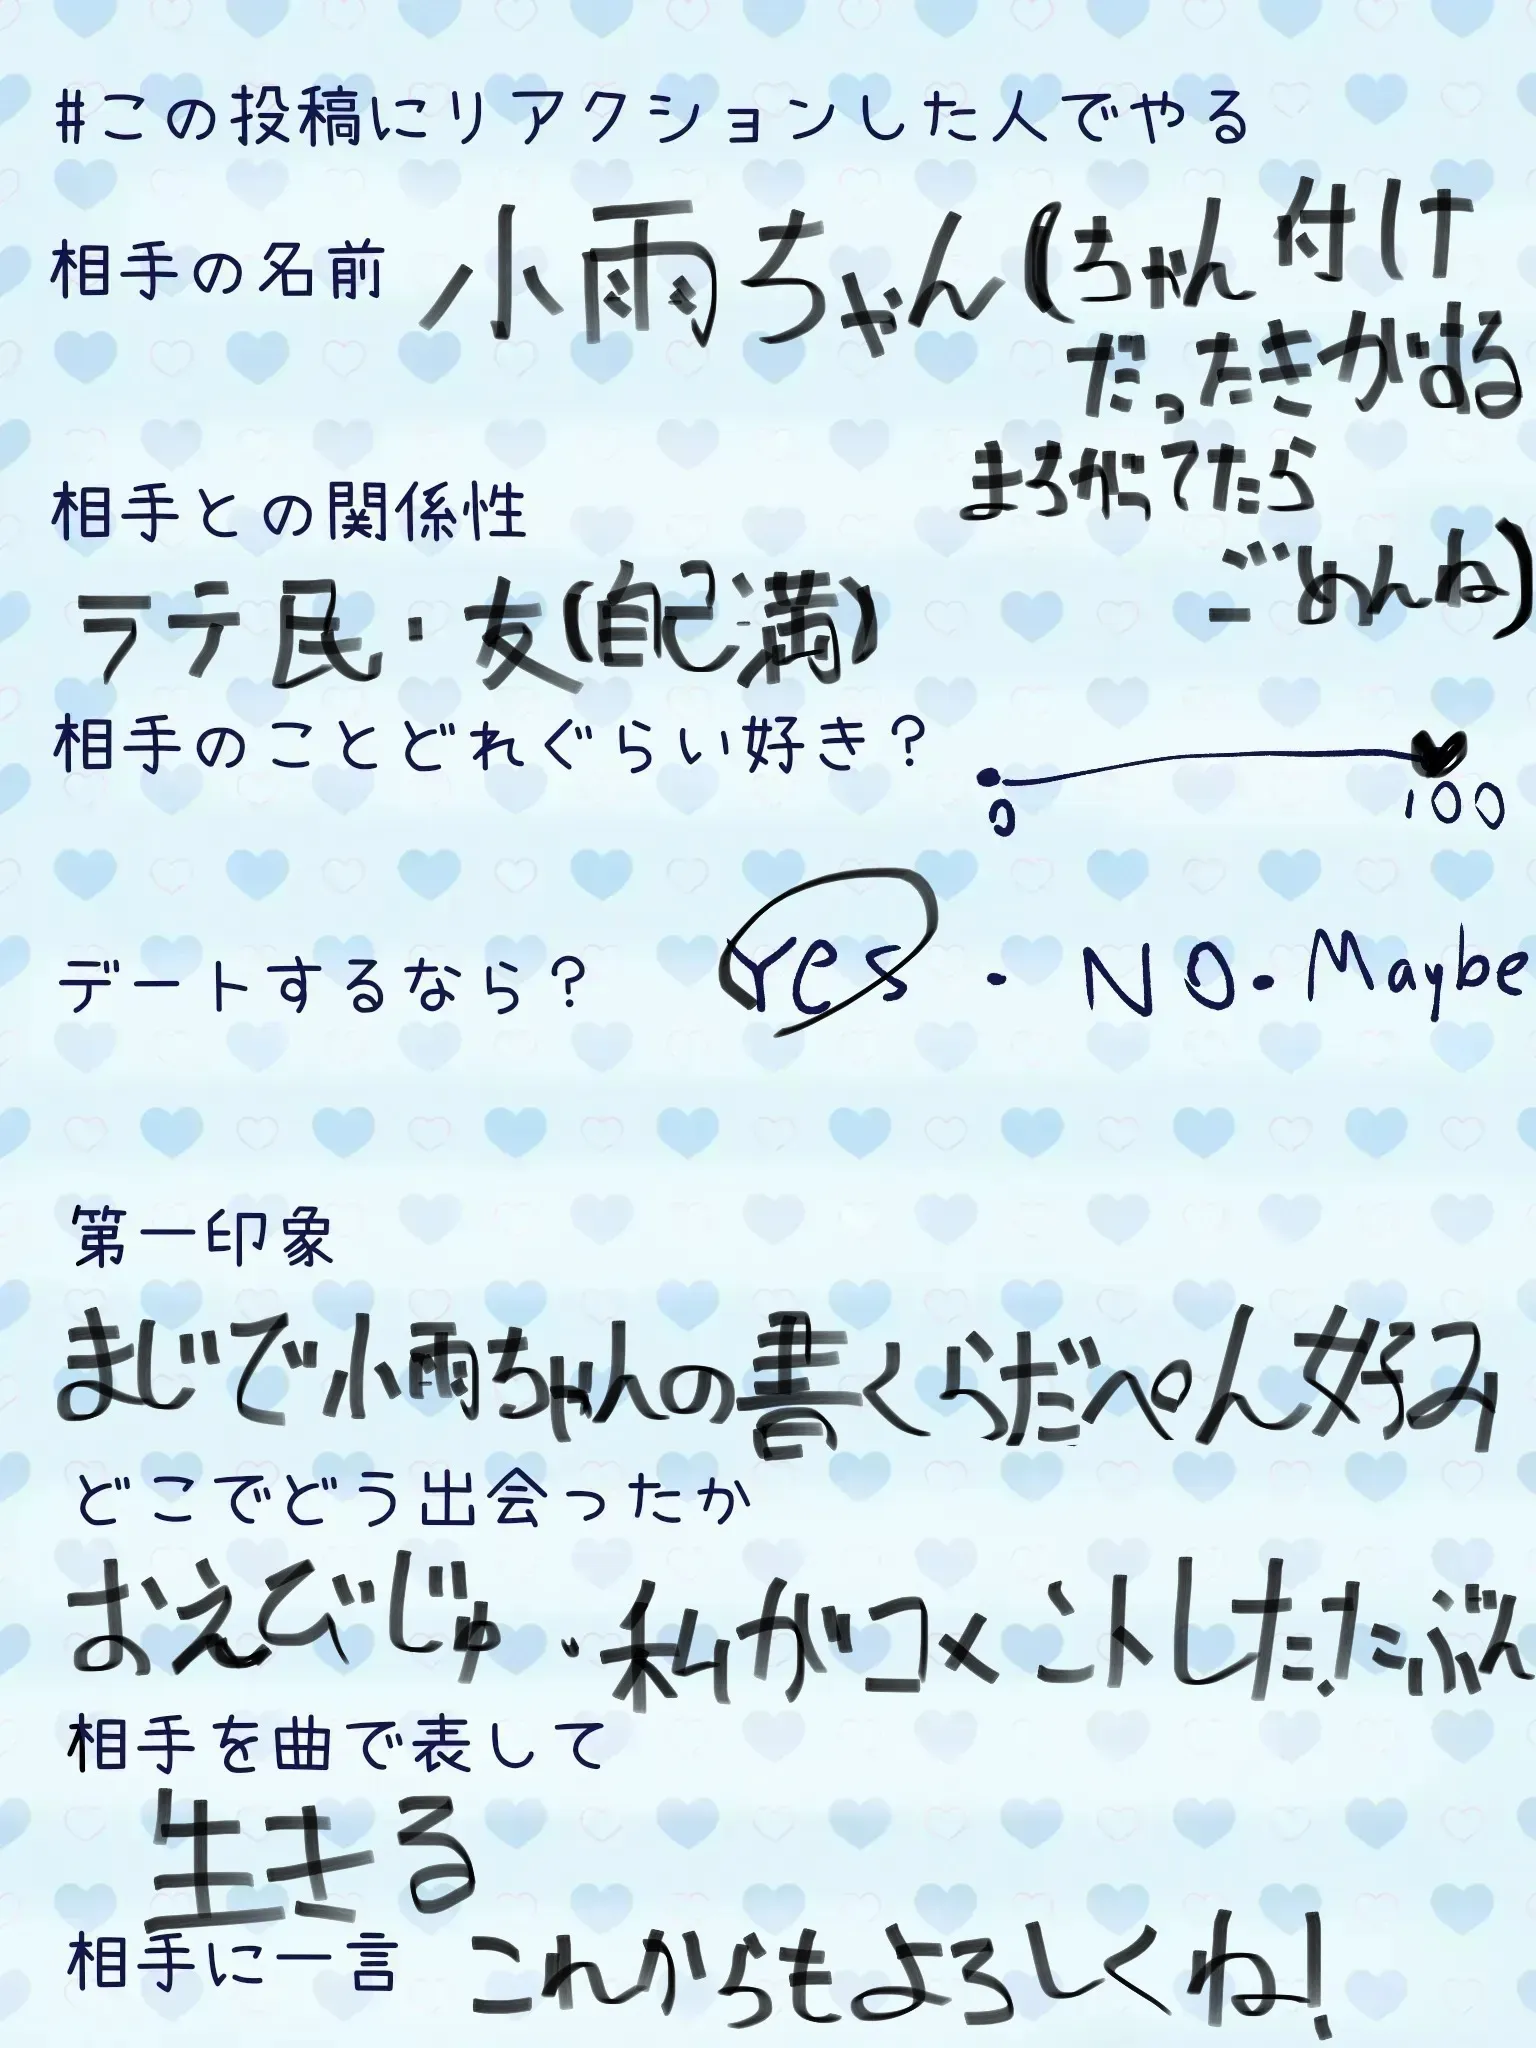 #この投稿にリアクションした人でやる
相手の名前 小雨ちゃん(ちゃん付け
だったきがする
まちがってたら
ごめんね)
相手との関係性
ラテ民・友(自己満)
相手のことどれぐらい好き?
0 100
デートするなら? Yes・NO・Maybe
第一印象
まじで小雨ちゃんの書くらだぺん好み
どこでどう出会ったか
おえびじゅ・私がコメントした.たぶん
相手を曲で表して
生きる
相手に一言 これからもよろしくね!